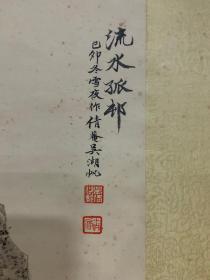 流水孤邨
己卯冬雪夜作倩菴吴湖帆